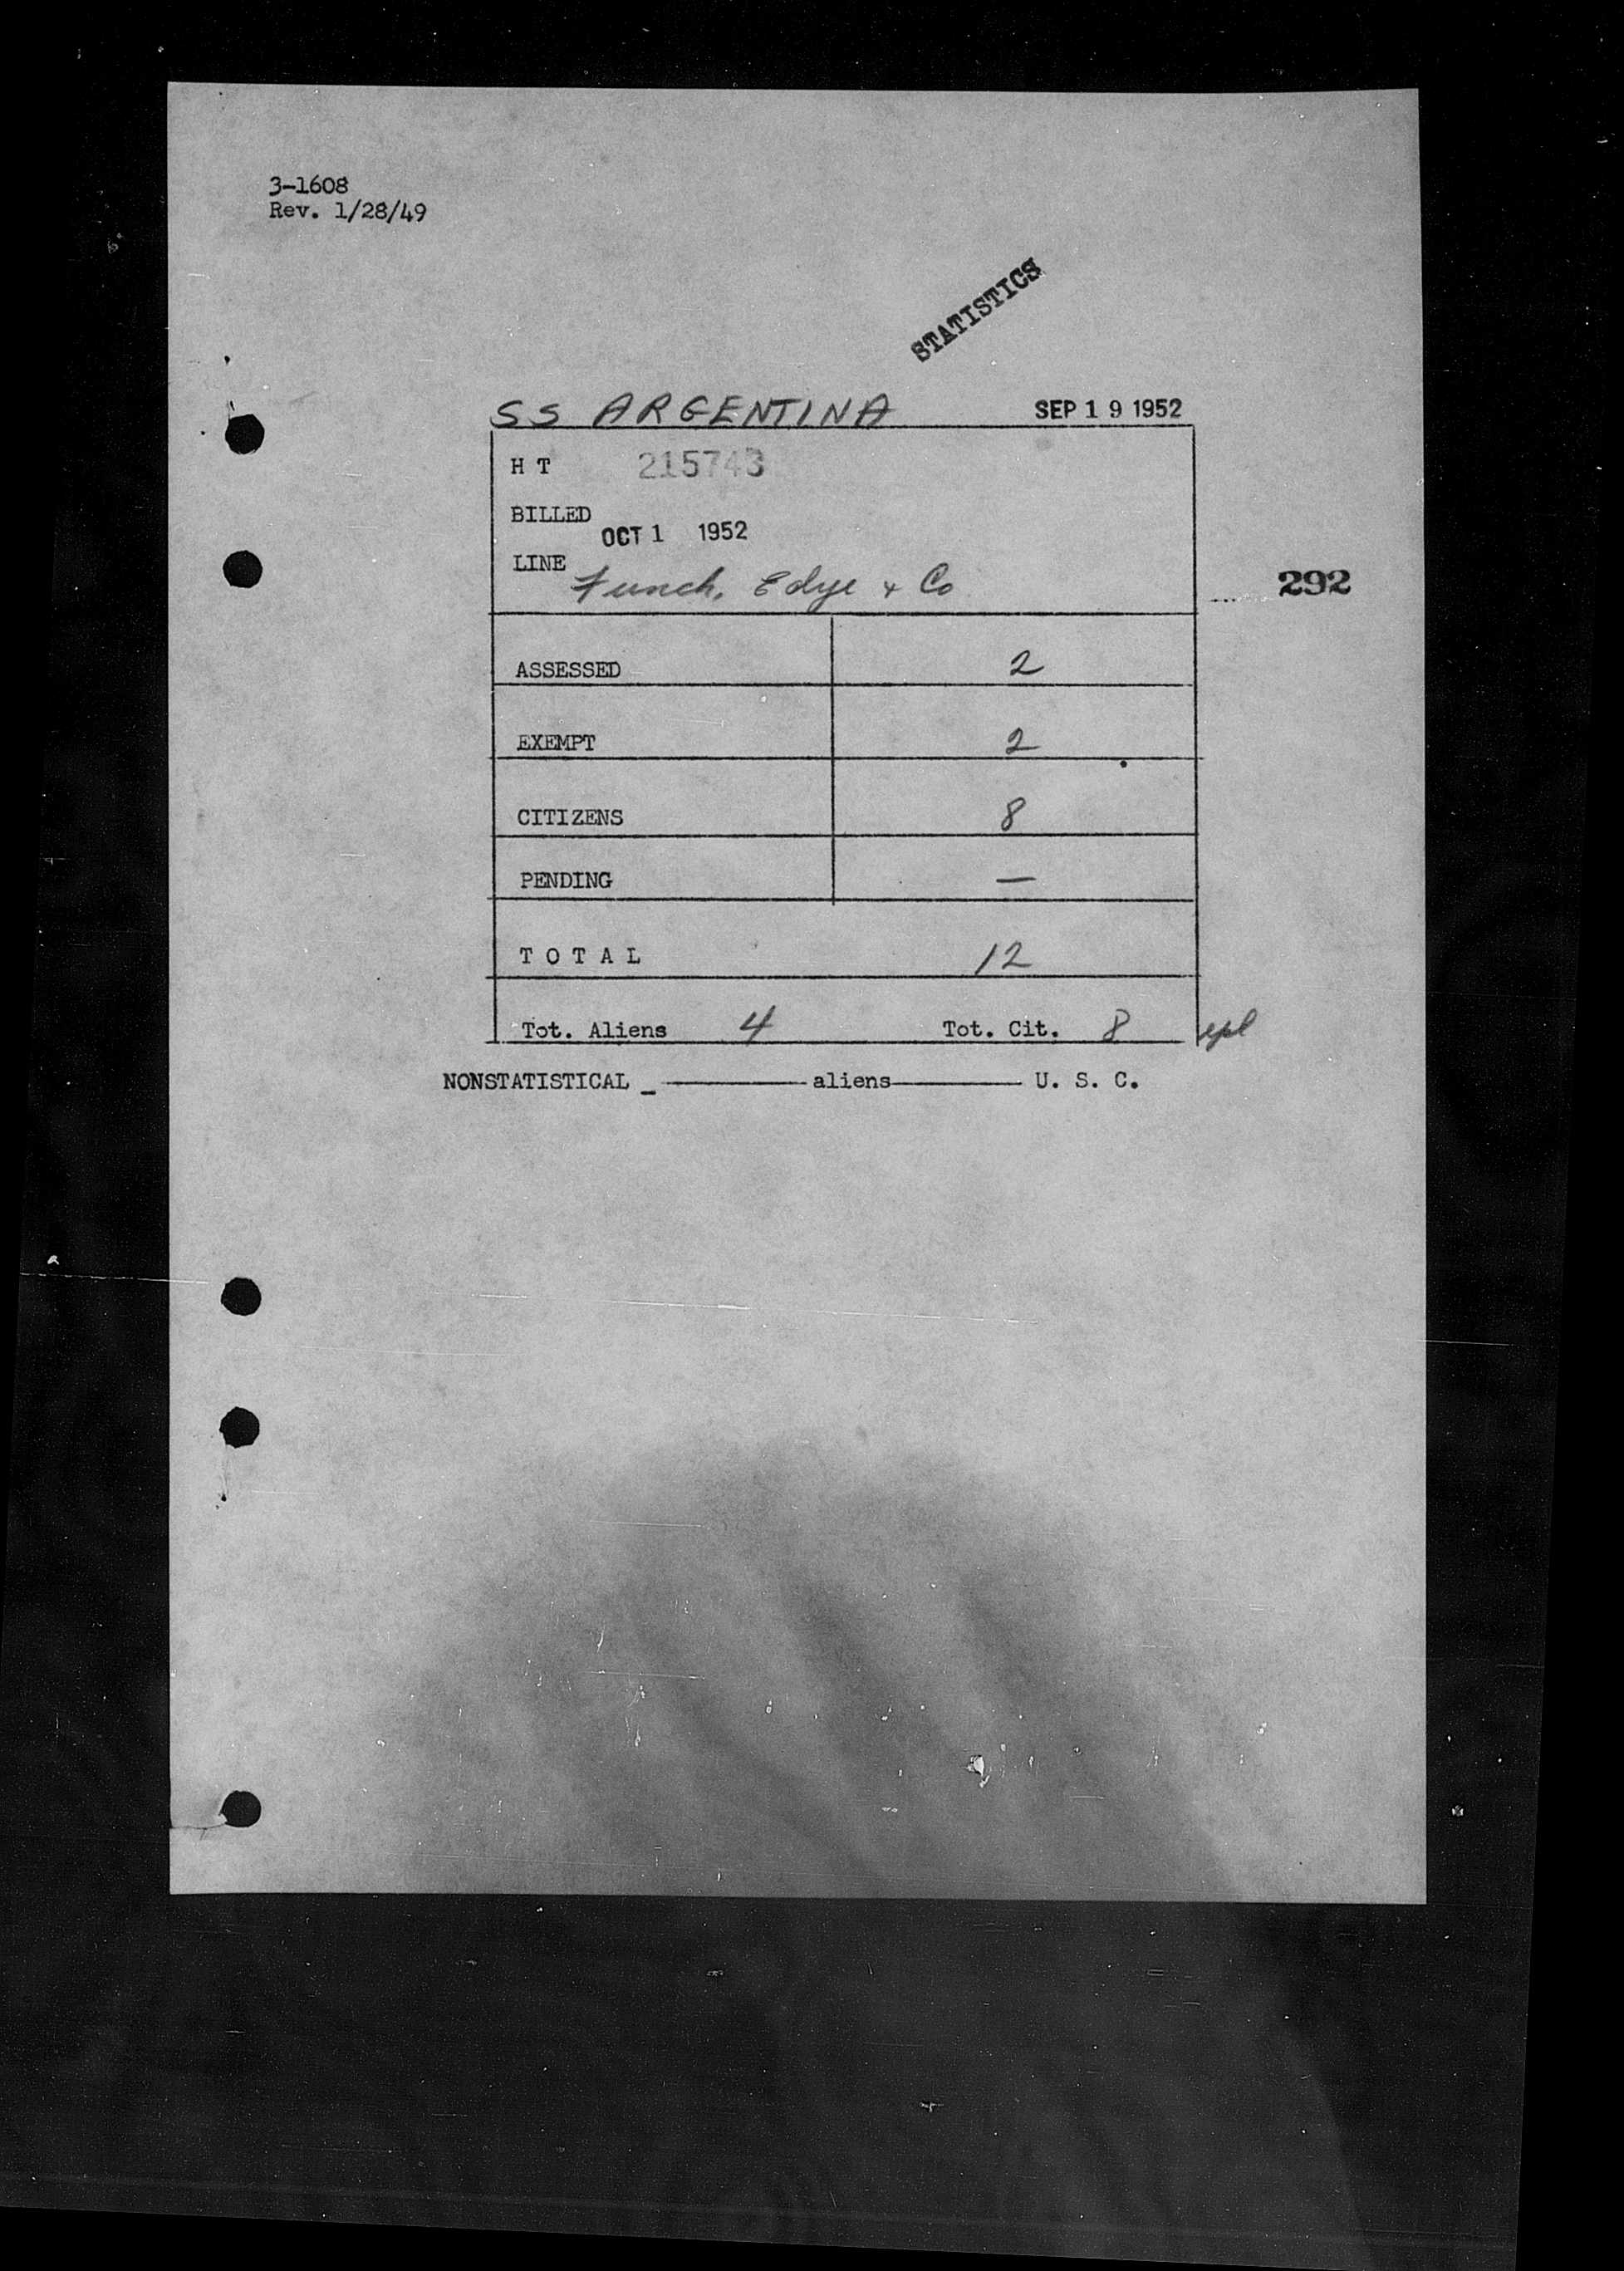 3-1608
Rev. 1/28/49
STATISTICS
SS ARGENTINA SEP 19 1952
H T 215743
BILLED
OCT 1 1952
LINE
Funch, Edye & Co
292
ASSESSED 2
EXEMPT 2
CITIZENS 8
PENDING —
T O T A L 12
Tot. Aliens 4 Tot. Cit. 8
NONSTATISTICAL _ ———— aliens ———— U. S. C.